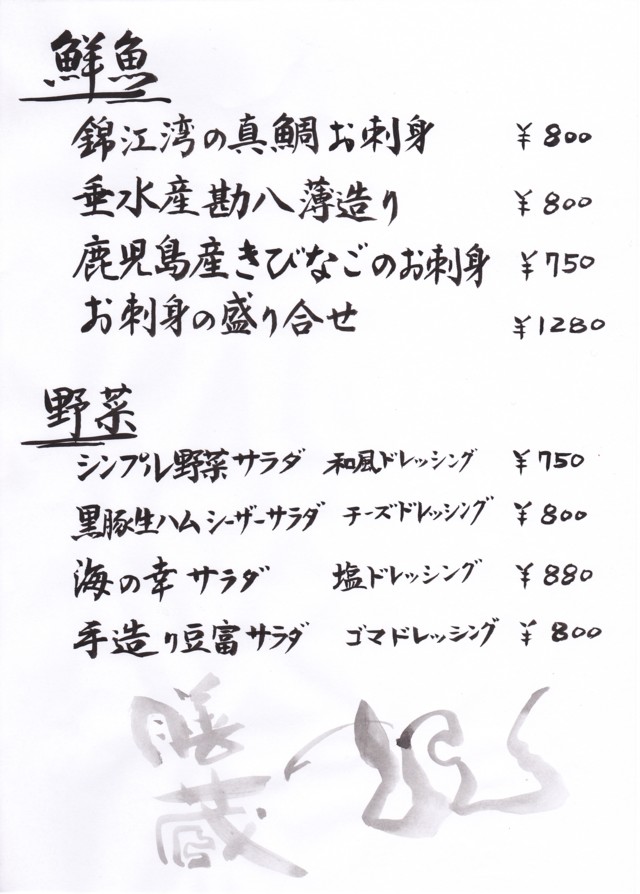 鮮魚
錦江湾の真鯛お刺身 ¥800
垂水産勘八薄造り ¥800
鹿児島産きびなごのお刺身 ¥750
お刺身の盛り合せ ¥1280
野菜
シンプル野菜サラダ 和風ドレッシング ¥750
黒豚生ハムシーザーサラダ チーズドレッシング ¥800
海の幸サラダ 塩ドレッシング ¥880
手造り豆富サラダ ゴマドレッシング ¥800
膳
蔵